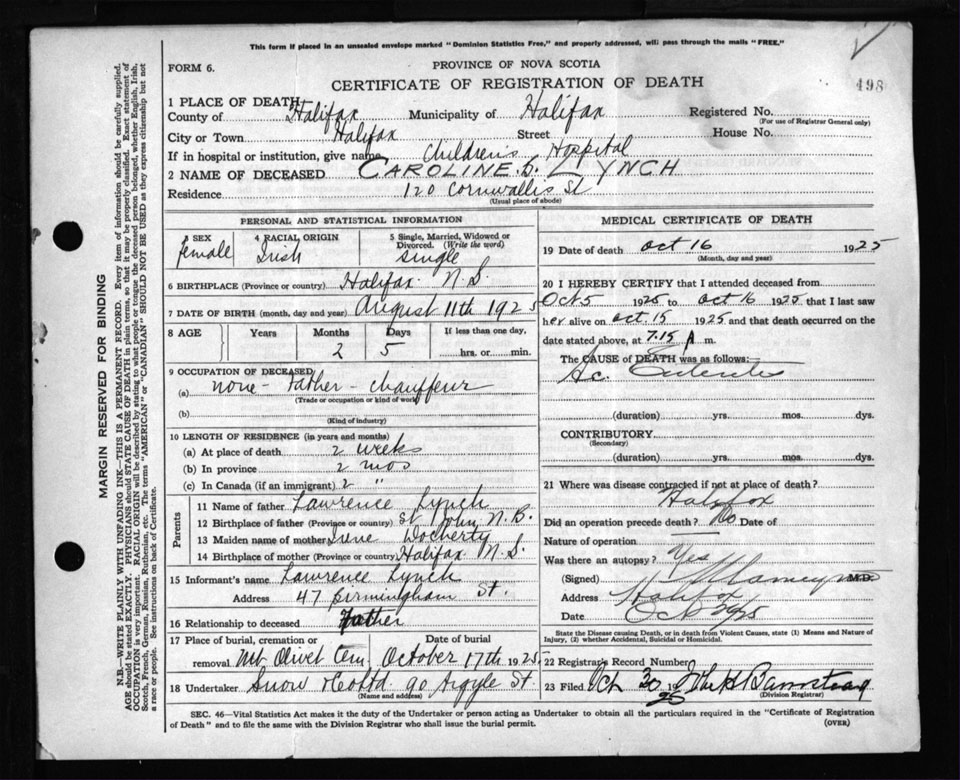 This form if placed in an unsealed envelope marked "Dominion Statistics Free," and properly addressed, will pass through the mails "FREE."
FORM 6.
PROVINCE OF NOVA SCOTIA
CERTIFICATE OF REGISTRATION OF DEATH
498
1 PLACE OF DEATH
County of Halifax Municipality of Halifax Registered No.
(For use of Registrar General only)
City or Town Halifax Street House No.
If in hospital or institution, give name Children's Hospital
2 NAME OF DECEASED CAROLINE. D. LYNCH
Residence 120 Cornwallis St
(Usual place of abode)
PERSONAL AND STATISTICAL INFORMATION
3 SEX female
4 RACIAL ORIGIN Irish
5 Single, Married, Widowed or Divorced. (Write the word) single
6 BIRTHPLACE (Province or country) Halifax N.S.
7 DATE OF BIRTH (month, day and year) August 11th 1925
8 AGE Years Months Days If less than one day,
2 5 hrs. or min.
9 OCCUPATION OF DECEASED
(a) none - Father - chauffeur
(Trade or occupation or kind of work)
(b)
(Kind of industry)
10 LENGTH OF RESIDENCE (in years and months)
(a) At place of death 2 weeks
(b) In province 2 mos
(c) In Canada (if an immigrant) 2 "
Parents
11 Name of father Lawrence Lynch
12 Birthplace of father (Province or country) St John, N.B.
13 Maiden name of mother Irene Docherty
14 Birthplace of mother (Province or country) Halifax N.S.
15 Informant's name Lawrence Lynch
Address 47 Birmingham St.
16 Relationship to deceased Father
17 Place of burial, cremation or Date of burial
removal Mt Olivet Cem October 17th 1925
18 Undertaker Snow & Co Ltd 90 Argyle St.
(Name and address)
MEDICAL CERTIFICATE OF DEATH
19 Date of death Oct 16 1925
(Month, day and year)
20 I HEREBY CERTIFY that I attended deceased from
Oct 5 1925 to Oct 16 1925 that I last saw
her alive on Oct. 15 1925 and that death occurred on the
date stated above, at 7.15 A m.
The CAUSE of DEATH was as follows:
Ac. Enteritis
(duration) yrs. mos. dys.
CONTRIBUTORY
(Secondary)
(duration) yrs. mos. dys.
21 Where was disease contracted if not at place of death?
Halifax
Did an operation precede death? No Date of
Nature of operation
Was there an autopsy? Yes
(Signed) M.D.
Address Halifax
Date Oct 29/25
State the Disease causing Death, or in death from Violent Causes, state (1) Means and Nature of
Injury, (2) whether Accidental, Suicidal or Homicidal.
22 Registrar's Record Number
23 Filed Oct 30 1925
(Division Registrar)
SEC. 46—Vital Statistics Act makes it the duty of the Undertaker or person acting as Undertaker to obtain all the particulars required in the "Certificate of Registration
of Death" and to file the same with the Division Registrar who shall issue the burial permit.
(OVER)
MARGIN RESERVED FOR BINDING
N.B.—WRITE PLAINLY WITH UNFADING INK—THIS IS A PERMANENT RECORD. Every item of information should be carefully supplied.
AGE should be stated EXACTLY. PHYSICIANS should STATE CAUSE OF DEATH in plain terms, so that it may be properly classified. Exact statement of
OCCUPATION is very important. RACIAL ORIGIN will be described by stating to what people or tongue the deceased person belonged, whether English, Irish,
Scotch, French, German, Russian, Ruthenian, etc. The terms "AMERICAN" or "CANADIAN" SHOULD NOT BE USED as they express citizenship but not
a race or people. See instructions on back of Certificate.